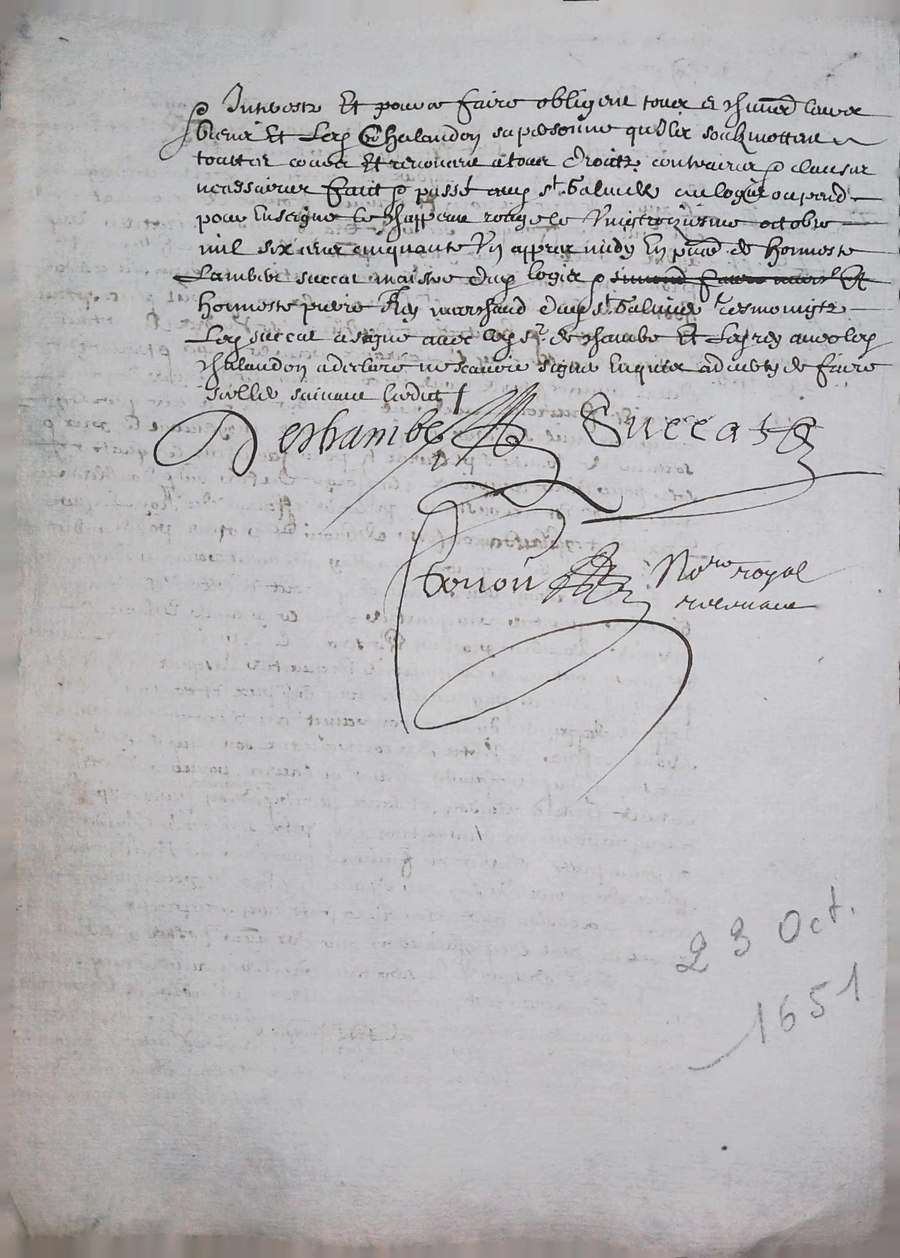 Et pour ce faire obligent tous &
biens Et Led Chalandon sa personne qu'ilz soubzmettent
touttes cours Et renoncent a tous droitz contraires & clauses
necessaires Fait & passé aud St Galmier au logis ou pend
pour Enseigne le Chappeau rouge le Vingtroiziesme octobre
mil six cens cinquante Un appres midy En pnce de Honneste
Lambert succat maistre dud logis &
Honneste pierre Rey marchand dud St Galmier tesmoingtz
Led succat a signé avec led Sr. deschambe Et Led rey avec led
chalandon a declaré ne scavoir signer Enquis de faire
suivant ledict
Deschambe Succat
Ponon No.re royal
23 Oct.
1651